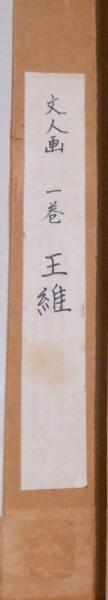 文人画 一巻 王維